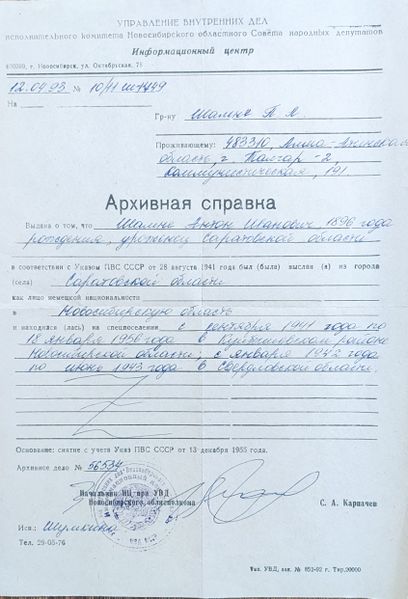 УПРАВЛЕНИЕ ВНУТРЕННИХ ДЕЛ
исполнительного комитета Новосибирского областного Совета народных депутатов
Информационный центр
г. Новосибирск, ул. Октябрьская, 78
12.04.93 №
На
Гр-ну Шалме П. А.
Проживающему: 483310, Алма-Атинская
область, г. Капчаг-2,
Коммунистическая, 191
Архивная справка
Выдана о том, что Шалме Антон Иванович, 1896 года
рождения, уроженец Саратовской области
в соответствии с Указом ПВС СССР от 28 августа 1941 года был (была) выслан (а) из города
(села) Саратовской области
как лицо немецкой национальности
в Новосибирскую область
и находился (лась) на спецпоселении с сентября 1941 года по
18 января 1956 года в Куйбышевском районе
Новосибирской области, с января 1942 года
по июнь 1943 года в Свердловской области.
Основание: снятие с учета Указ ПВС СССР от 13 декабря 1955 года.
Архивное дело № 56534
Начальник ИЦ при УВД
Новосибирского облисполкома
С. А. Карпачев
Исп.: Шумкина
Тел. 29-05-76
Тип. УВД, зак. № 852-92 г. Тир.20000